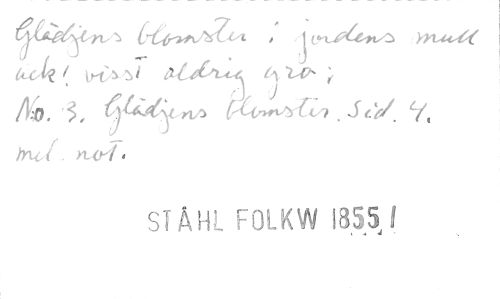 Glädjens blomster i jordens mull
ack! visst aldrig gro;
No. 3. Glädjens blomster. Sid. 4.
mel. not.
STÅHL FOLKW 1855!